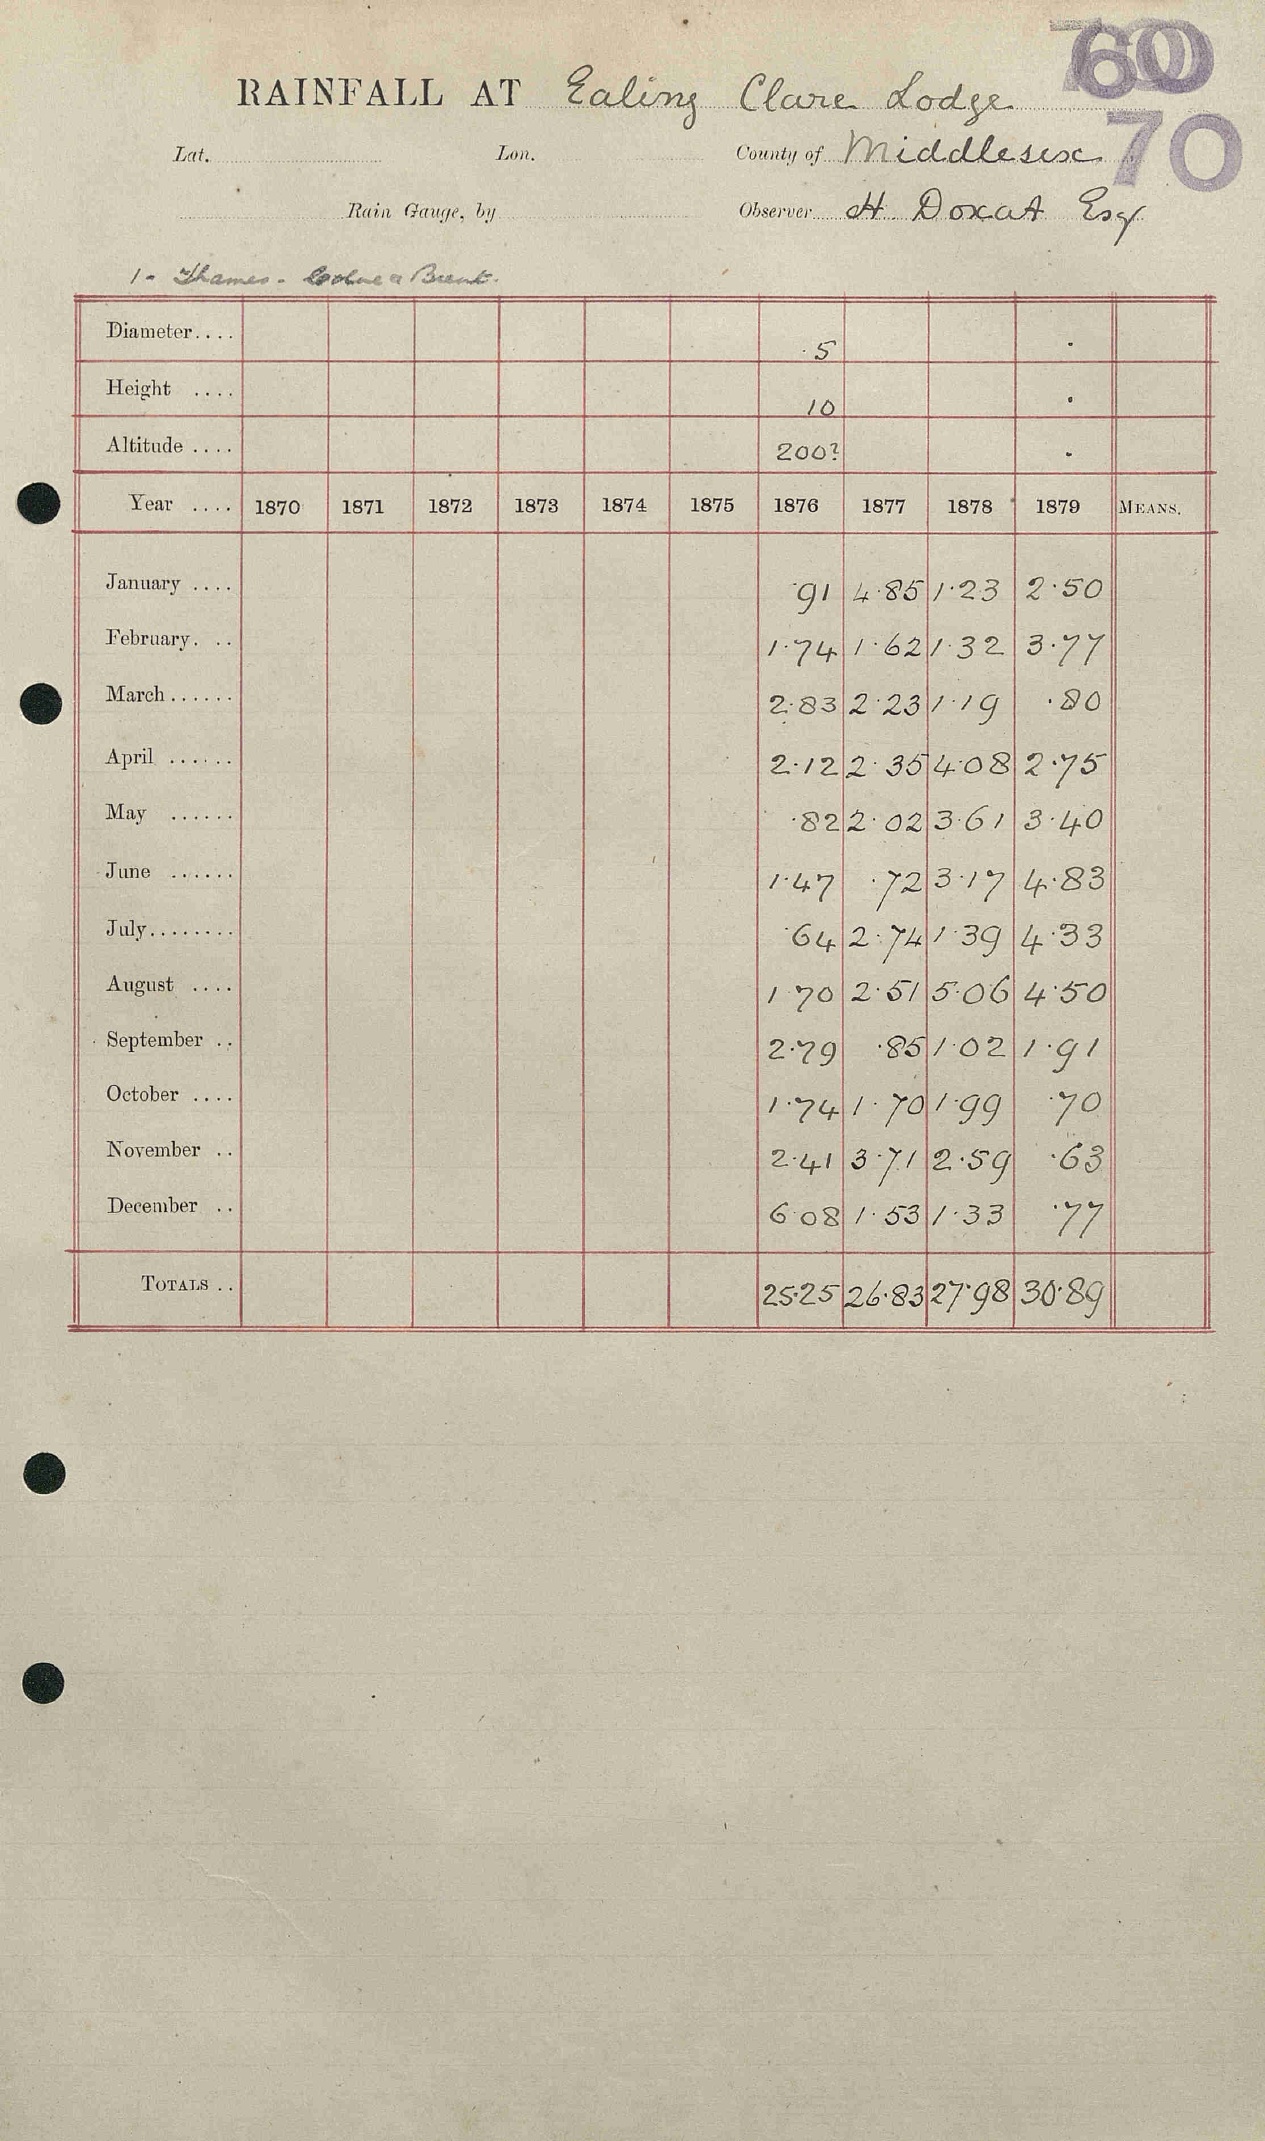 60
70
RAINFALL AT Ealing Clare Lodge
Lat. Lon. County of Middlesex
Rain Gauge, by Observer H Doxat Esqr
1 - Thames - Colne & Brent.
Diameter.... 5
Height .... 10
Altitude .... 200?
Year .... 1870 1871 1872 1873 1874 1875 1876 1877 1878 1879 MEANS.
January .... ·91 4·85 1·23 2·50
February. .. 1·74 1·62 1·32 3·77
March...... 2·83 2·23 1·19 ·80
April ...... 2·12 2·35 4·08 2·75
May ...... ·82 2·02 3·61 3·40
June ...... 1·47 ·72 3·17 4·83
July........ ·64 2·74 1·39 4·33
August .... 1·70 2·51 5·06 4·50
September .. 2·79 ·85 1·02 1·91
October .... 1·74 1·70 1·99 ·70
November .. 2·41 3·71 2·59 ·63
December .. 6·08 1·53 1·33 ·77
TOTALS .. 25·25 26·83 27·98 30·89